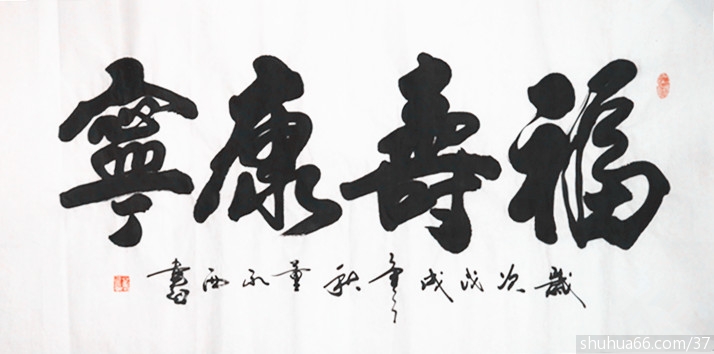 福壽康寧
歲次戊戌年秋董西書
shuhua66.com/37